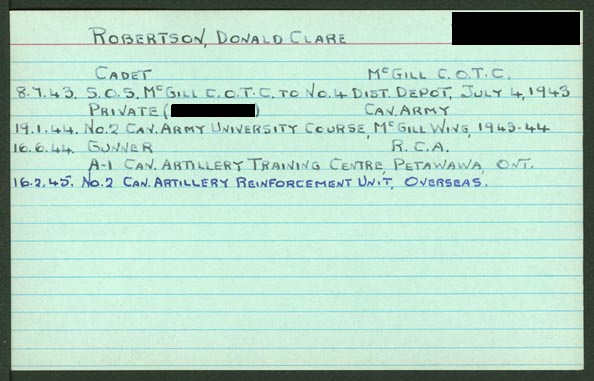 ROBERTSON, DONALD CLARE
CADET McGILL C.O.T.C.
8.7.43. S.O.S. McGILL C.O.T.C. TO No.4 DIST. DEPOT, JULY 4, 1943
PRIVATE ( ) CAN. ARMY
19.1.44. No.2 CAN. ARMY UNIVERSITY COURSE, McGILL WING, 1943-44
16.6.44. GUNNER R.C.A.
A-1 CAN. ARTILLERY TRAINING CENTRE, PETAWAWA, ONT.
16.2.45. No.2 CAN. ARTILLERY REINFORCEMENT UNIT, OVERSEAS.